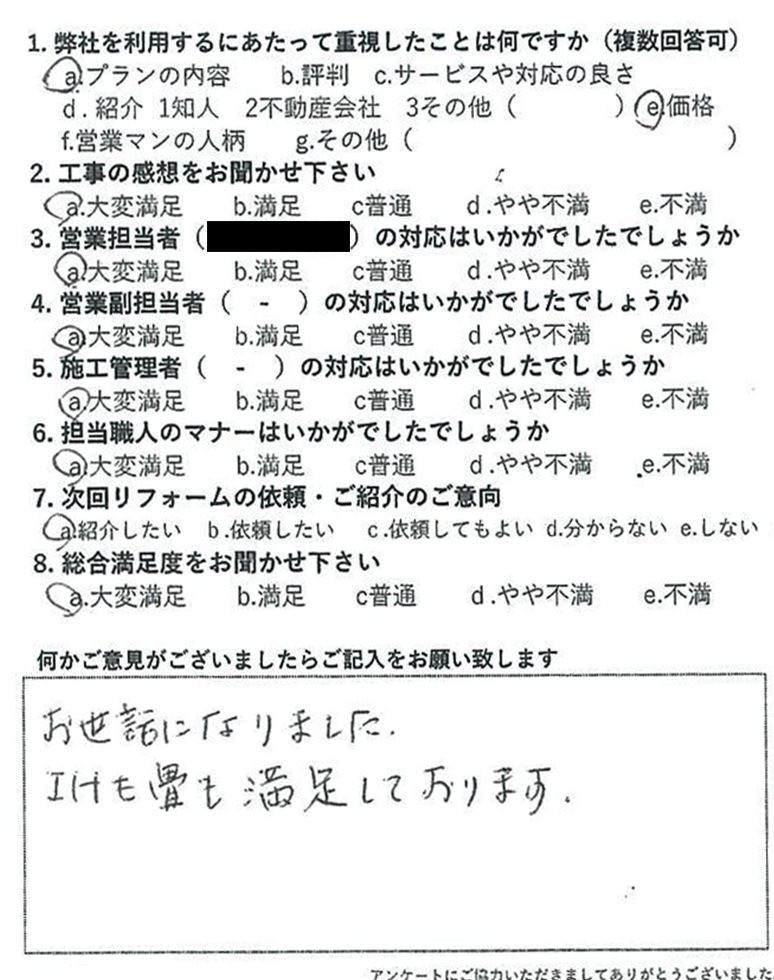 1. 弊社を利用するにあたって重視したことは何ですか（複数回答可）
a.プランの内容 b.評判 c.サービスや対応の良さ
d.紹介 1知人 2不動産会社 3その他（ ）e.価格
f.営業マンの人柄 g.その他（ ）
2. 工事の感想をお聞かせ下さい
a.大変満足 b.満足 c普通 d.やや不満 e.不満
3. 営業担当者（ ）の対応はいかがでしたでしょうか
a.大変満足 b.満足 c普通 d.やや不満 e.不満
4. 営業副担当者（ - ）の対応はいかがでしたでしょうか
a.大変満足 b.満足 c普通 d.やや不満 e.不満
5. 施工管理者（ - ）の対応はいかがでしたでしょうか
a.大変満足 b.満足 c普通 d.やや不満 e.不満
6. 担当職人のマナーはいかがでしたでしょうか
a.大変満足 b.満足 c普通 d.やや不満 e.不満
7. 次回リフォームの依頼・ご紹介のご意向
a.紹介したい b.依頼したい c.依頼してもよい d.分からない e.しない
8. 総合満足度をお聞かせ下さい
a.大変満足 b.満足 c普通 d.やや不満 e.不満
何かご意見がございましたらご記入をお願い致します
お世話になりました.
も畳も満足しております.
アンケートにご協力いただきましてありがとうございました